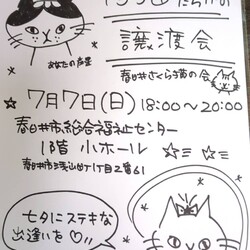 譲渡会
あなたの
春日井さくら猫の会
7月7日(日) 18:00～20:00
春日井市総合福祉センター
1階 小ホール
春日井市浅山町1丁目2番61
七夕にステキな
出逢いを♡!!